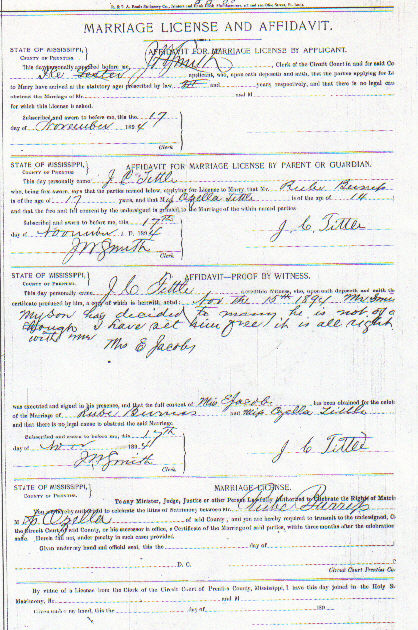 MARRIAGE LICENSE AND AFFIDAVIT.
STATE OF MISSISSIPPI,
COUNTY OF PRENTISS.
AFFIDAVIT FOR MARRIAGE LICENSE BY APPLICANT.
This day personally appeared before me, J W Smith Clerk of the Circuit Court in and for said Co
applicant, who, upon oath deposeth and saith, that the parties applying for Li
to Marry have arrived at the statutory ages prescribed by law, and years, respectively, and that there is no legal cause
obstruct the Marriage of Mr. and M
for which this License is asked.
Subscribed and sworn to before me, this the 17
day of November 1894
Clerk
STATE OF MISSISSIPPI,
COUNTY OF PRENTISS.
AFFIDAVIT FOR MARRIAGE LICENSE BY PARENT OR GUARDIAN.
This day personally came J. C Tittle
who, being first sworn, says that the parties named below, applying for License to Marry, that Mr. Rube
is of the age of 17 years, and that Miss Ozella Tittle is of the age of 14
and that the free and full consent of the undersigned is granted to the Marriage of the within named parties
Subscribed and sworn to before me, this 17th
day of November 1894
J C Tittle
J W Smith
Clerk.
STATE OF MISSISSIPPI,
COUNTY OF PRENTISS.
AFFIDAVIT—PROOF BY WITNESS.
This day personally came J. C Tittle witness, who, upon oath deposeth and saith the
certificate produced by him, a copy of which is herewith, noted: Nov the 15th 1894 Mr
My son has decided to marry he is not of a
though I have set him free it is all right
with me
Mrs E Jacobs
was executed and signed in his presence, and the full consent of Mis E Jacobs has been obtained for the
of the Marriage of Rube and Miss Ozella Tittle
and that there is no legal cause to obstruct the said Marriage.
Subscribed and sworn to before me, this 17th
day of Nov 1894
J C Tittle
J W Smith
Clerk
STATE OF MISSISSIPPI,
COUNTY OF PRENTISS.
MARRIAGE LICENSE.
To any Minister, Judge, Justice or other Person Lawfully Authorized to Celebrate the Rights of Matrim
You are hereby authorized to celebrate the Rites of Matrimony between Mr. Rube
Ozella of said County, and you are hereby required to transmit to the undersigned, C
the Circuit Court of said County, or his successor in office, a Certificate of the Marriage of said parties, within three months after the celebration
same. Herein fail not, under penalty in such cases provided.
Given under my hand and official seal, this the day of
D. C.
Circuit Court Prentiss Co
By virtue of a License from the Clerk of the Circuit Court of Prentiss County, Mississippi, I have this day joined in the Holy S
Matrimony, Mr. and M
Given under my hand, this the day of 189